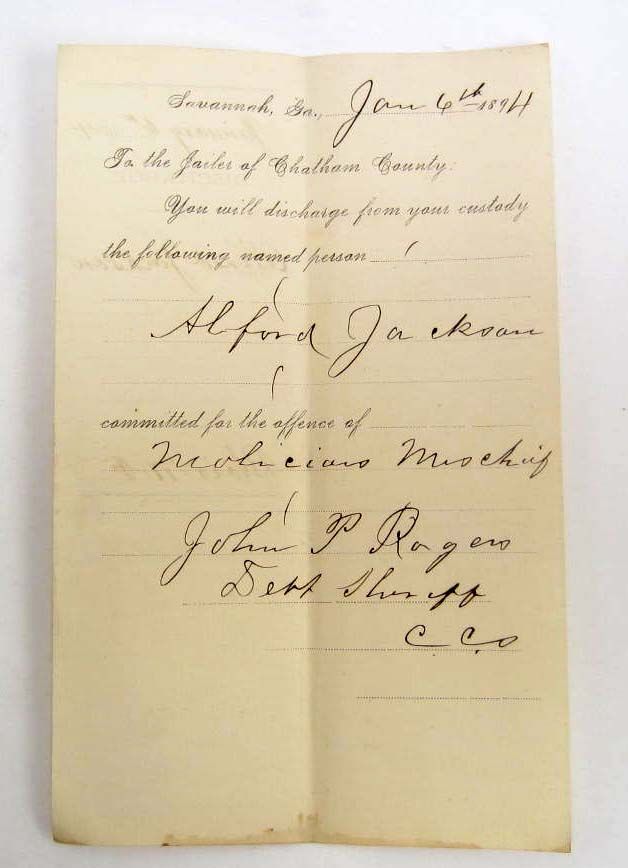 Savannah, Ga., Jan 6th 1894
To the Jailer of Chatham County:
You will discharge from your custody
the following named person
Alford Jackson
committed for the offence of
Malicious Mischief
John P Rogers
Dept Sheriff
C. C. G